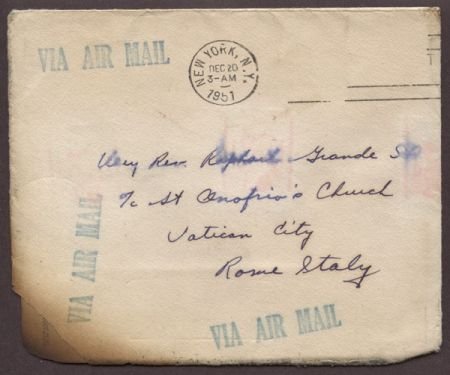 VIA AIR MAIL
NEW YORK, N.Y.
DEC 20
3-AM
1951
Very Rev. Raphael Grande
℅ St Onofrio's Church
Vatican City
Rome Italy
VIA AIR MAIL
VIA AIR MAIL